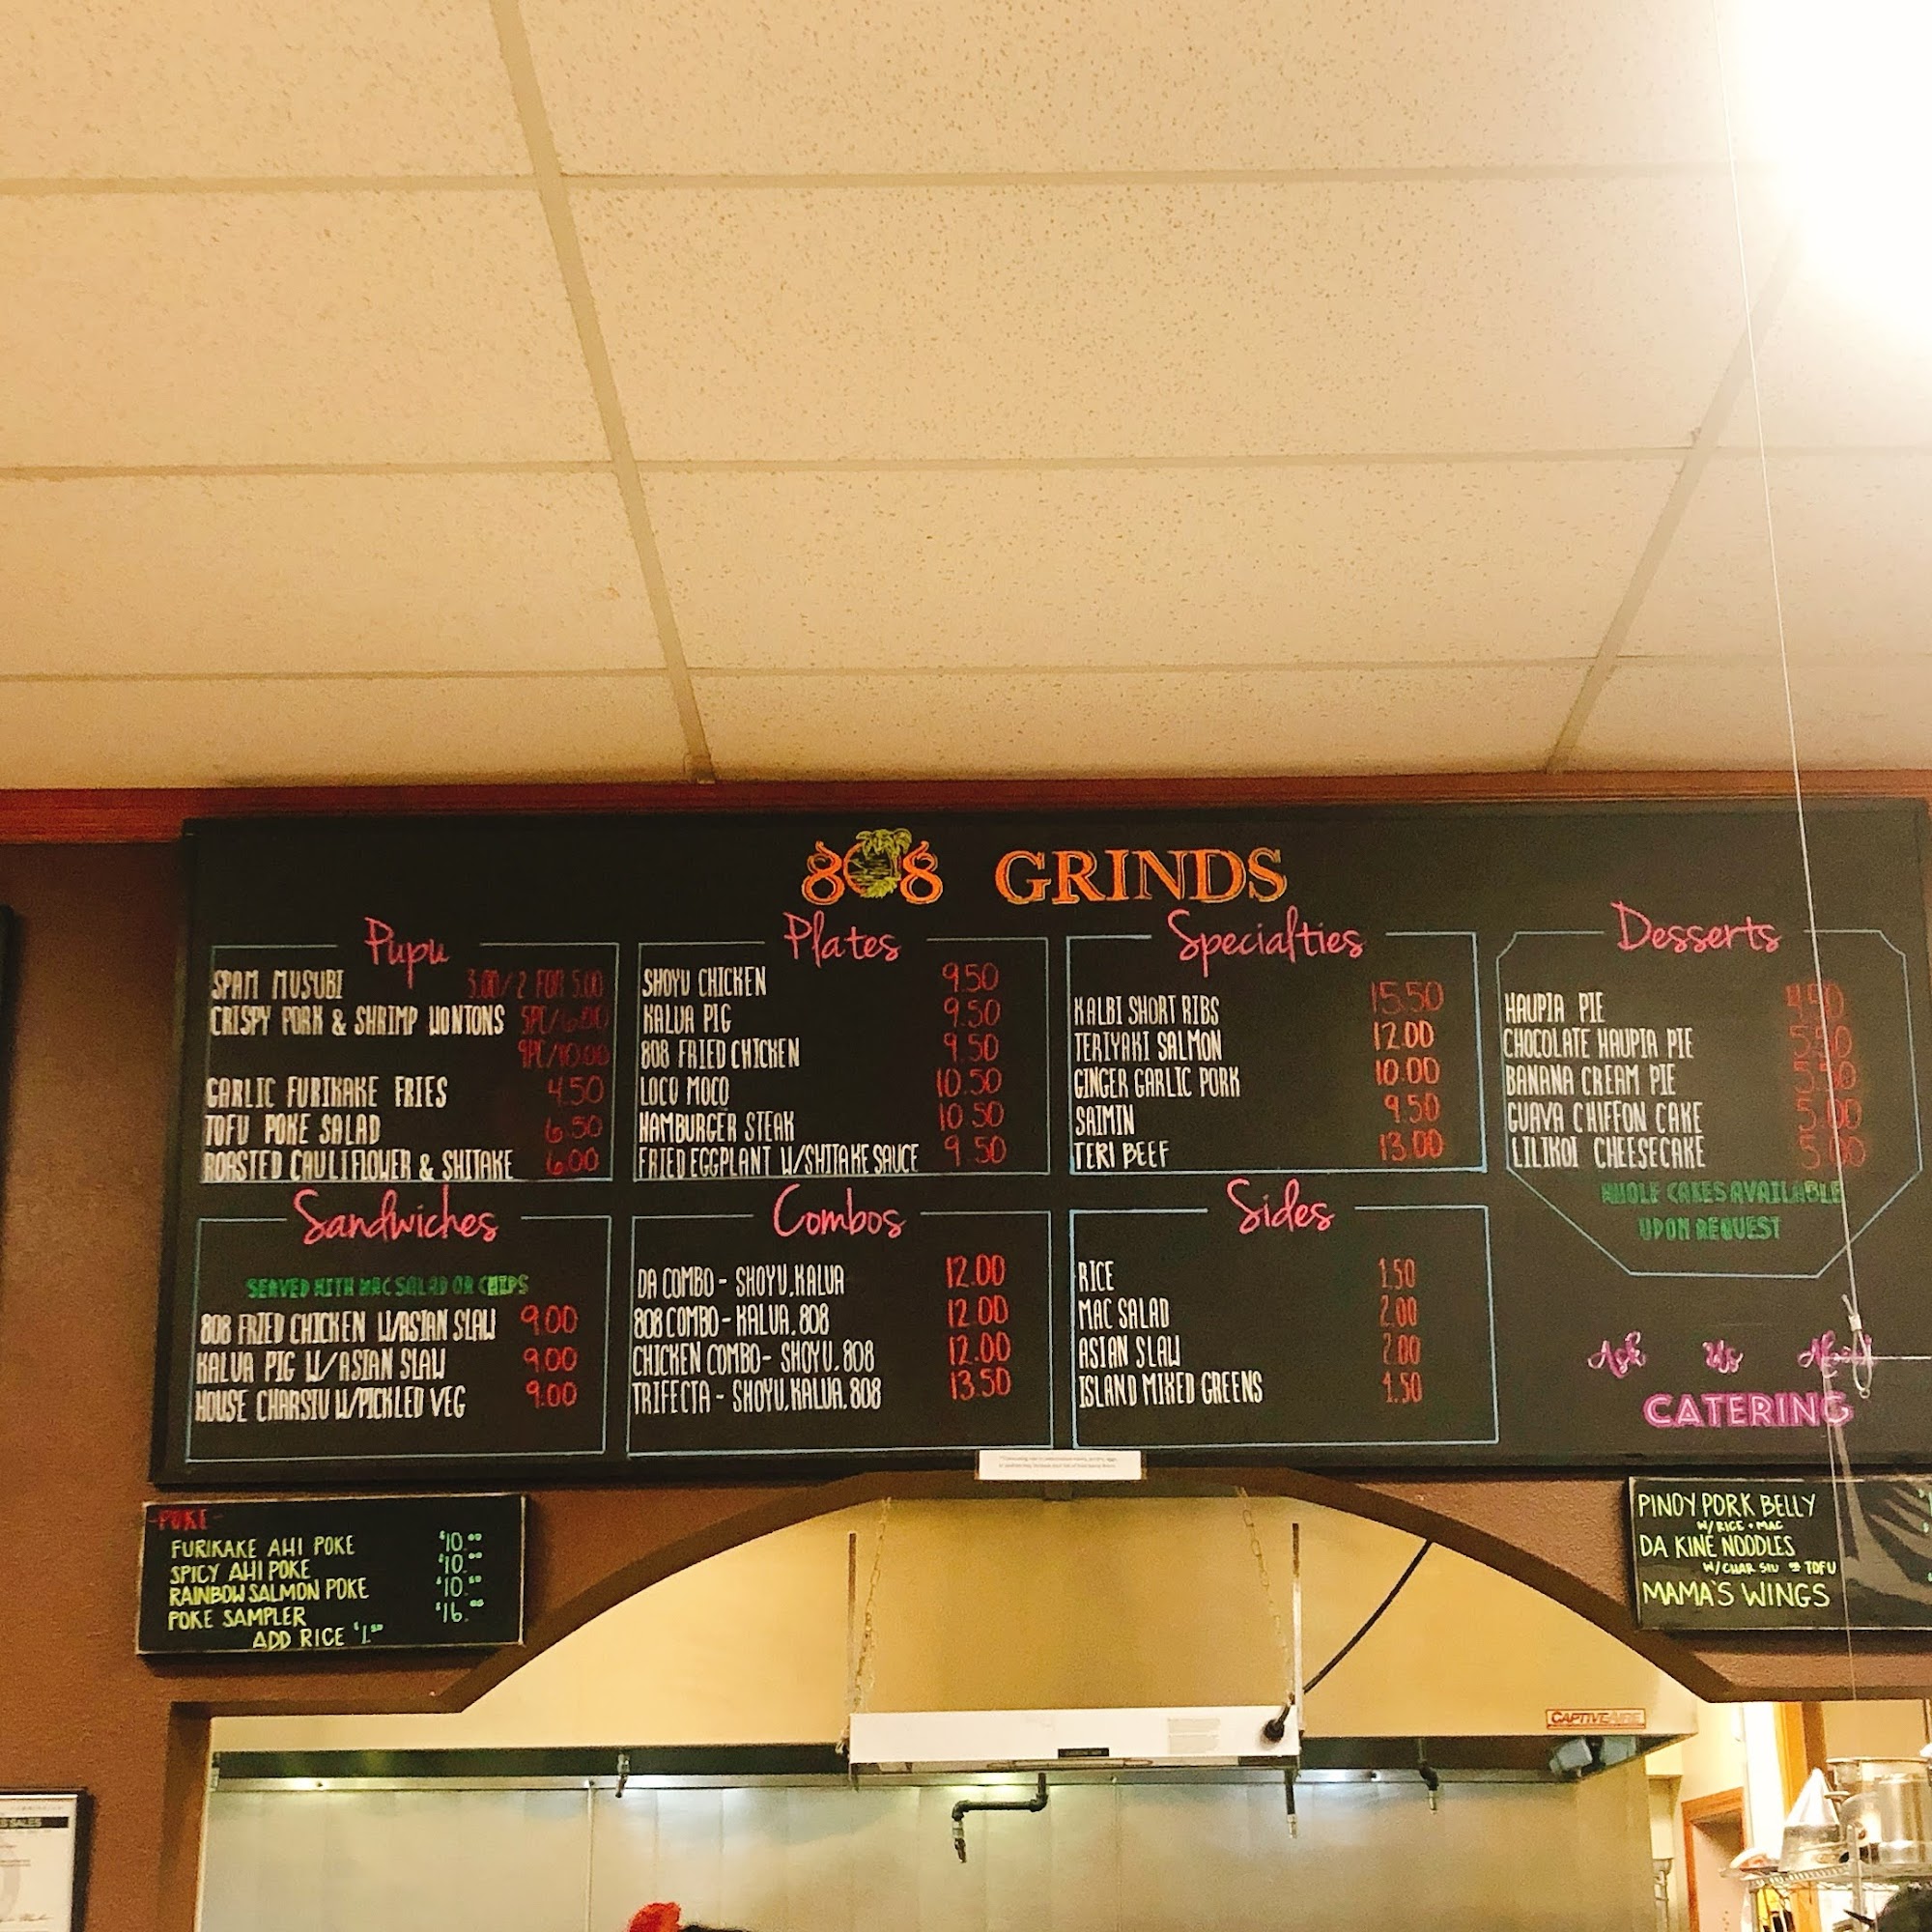 808 GRINDS
Pupu
SPAM MUSUBI 3.00/2 FOR 5.00
CRISPY PORK & SHRIMP WONTONS 5PC/6.00
9PC/10.00
GARLIC FURIKAKE FRIES 4.50
TOFU POKE SALAD 6.50
ROASTED CAULIFLOWER & SHITAKE 6.00
Plates
SHOYU CHICKEN 9.50
KALUA PIG 9.50
808 FRIED CHICKEN 9.50
LOCO MOCO 10.50
HAMBURGER STEAK 10.50
FRIED EGGPLANT W/SHITAKE SAUCE 9.50
Specialties
KALBI SHORT RIBS 15.50
TERIYAKI SALMON 12.00
GINGER GARLIC PORK 10.00
SAIMIN 9.50
TERI BEEF 13.00
Desserts
HAUPIA PIE 4.50
CHOCOLATE HAUPIA PIE 5.50
BANANA CREAM PIE 5.50
GUAVA CHIFFON CAKE 5.00
LILIKOI CHEESECAKE 5.00
WHOLE CAKES AVAILABLE
UPON REQUEST
Sandwiches
SERVED WITH MAC SALAD OR CHIPS
808 FRIED CHICKEN W/ASIAN SLAW 9.00
KALUA PIG W/ASIAN SLAW 9.00
HOUSE CHARSIU W/PICKLED VEG 9.00
Combos
DA COMBO - SHOYU, KALUA 12.00
808 COMBO - KALUA, 808 12.00
CHICKEN COMBO - SHOYU, 808 12.00
TRIFECTA - SHOYU, KALUA, 808 13.50
Sides
RICE 1.50
MAC SALAD 2.00
ASIAN SLAW 2.00
ISLAND MIXED GREENS 1.50
Ask Us About
CATERING
-POKE-
FURIKAKE AHI POKE $10.00
SPICY AHI POKE $10.00
RAINBOW SALMON POKE $10.00
POKE SAMPLER $16.00
ADD RICE $1.50
PINOY PORK BELLY
W/ RICE + MAC
DA KINE NOODLES
W/ CHAR SIU OR TOFU
MAMA'S WINGS
CAPTIVEAIRE